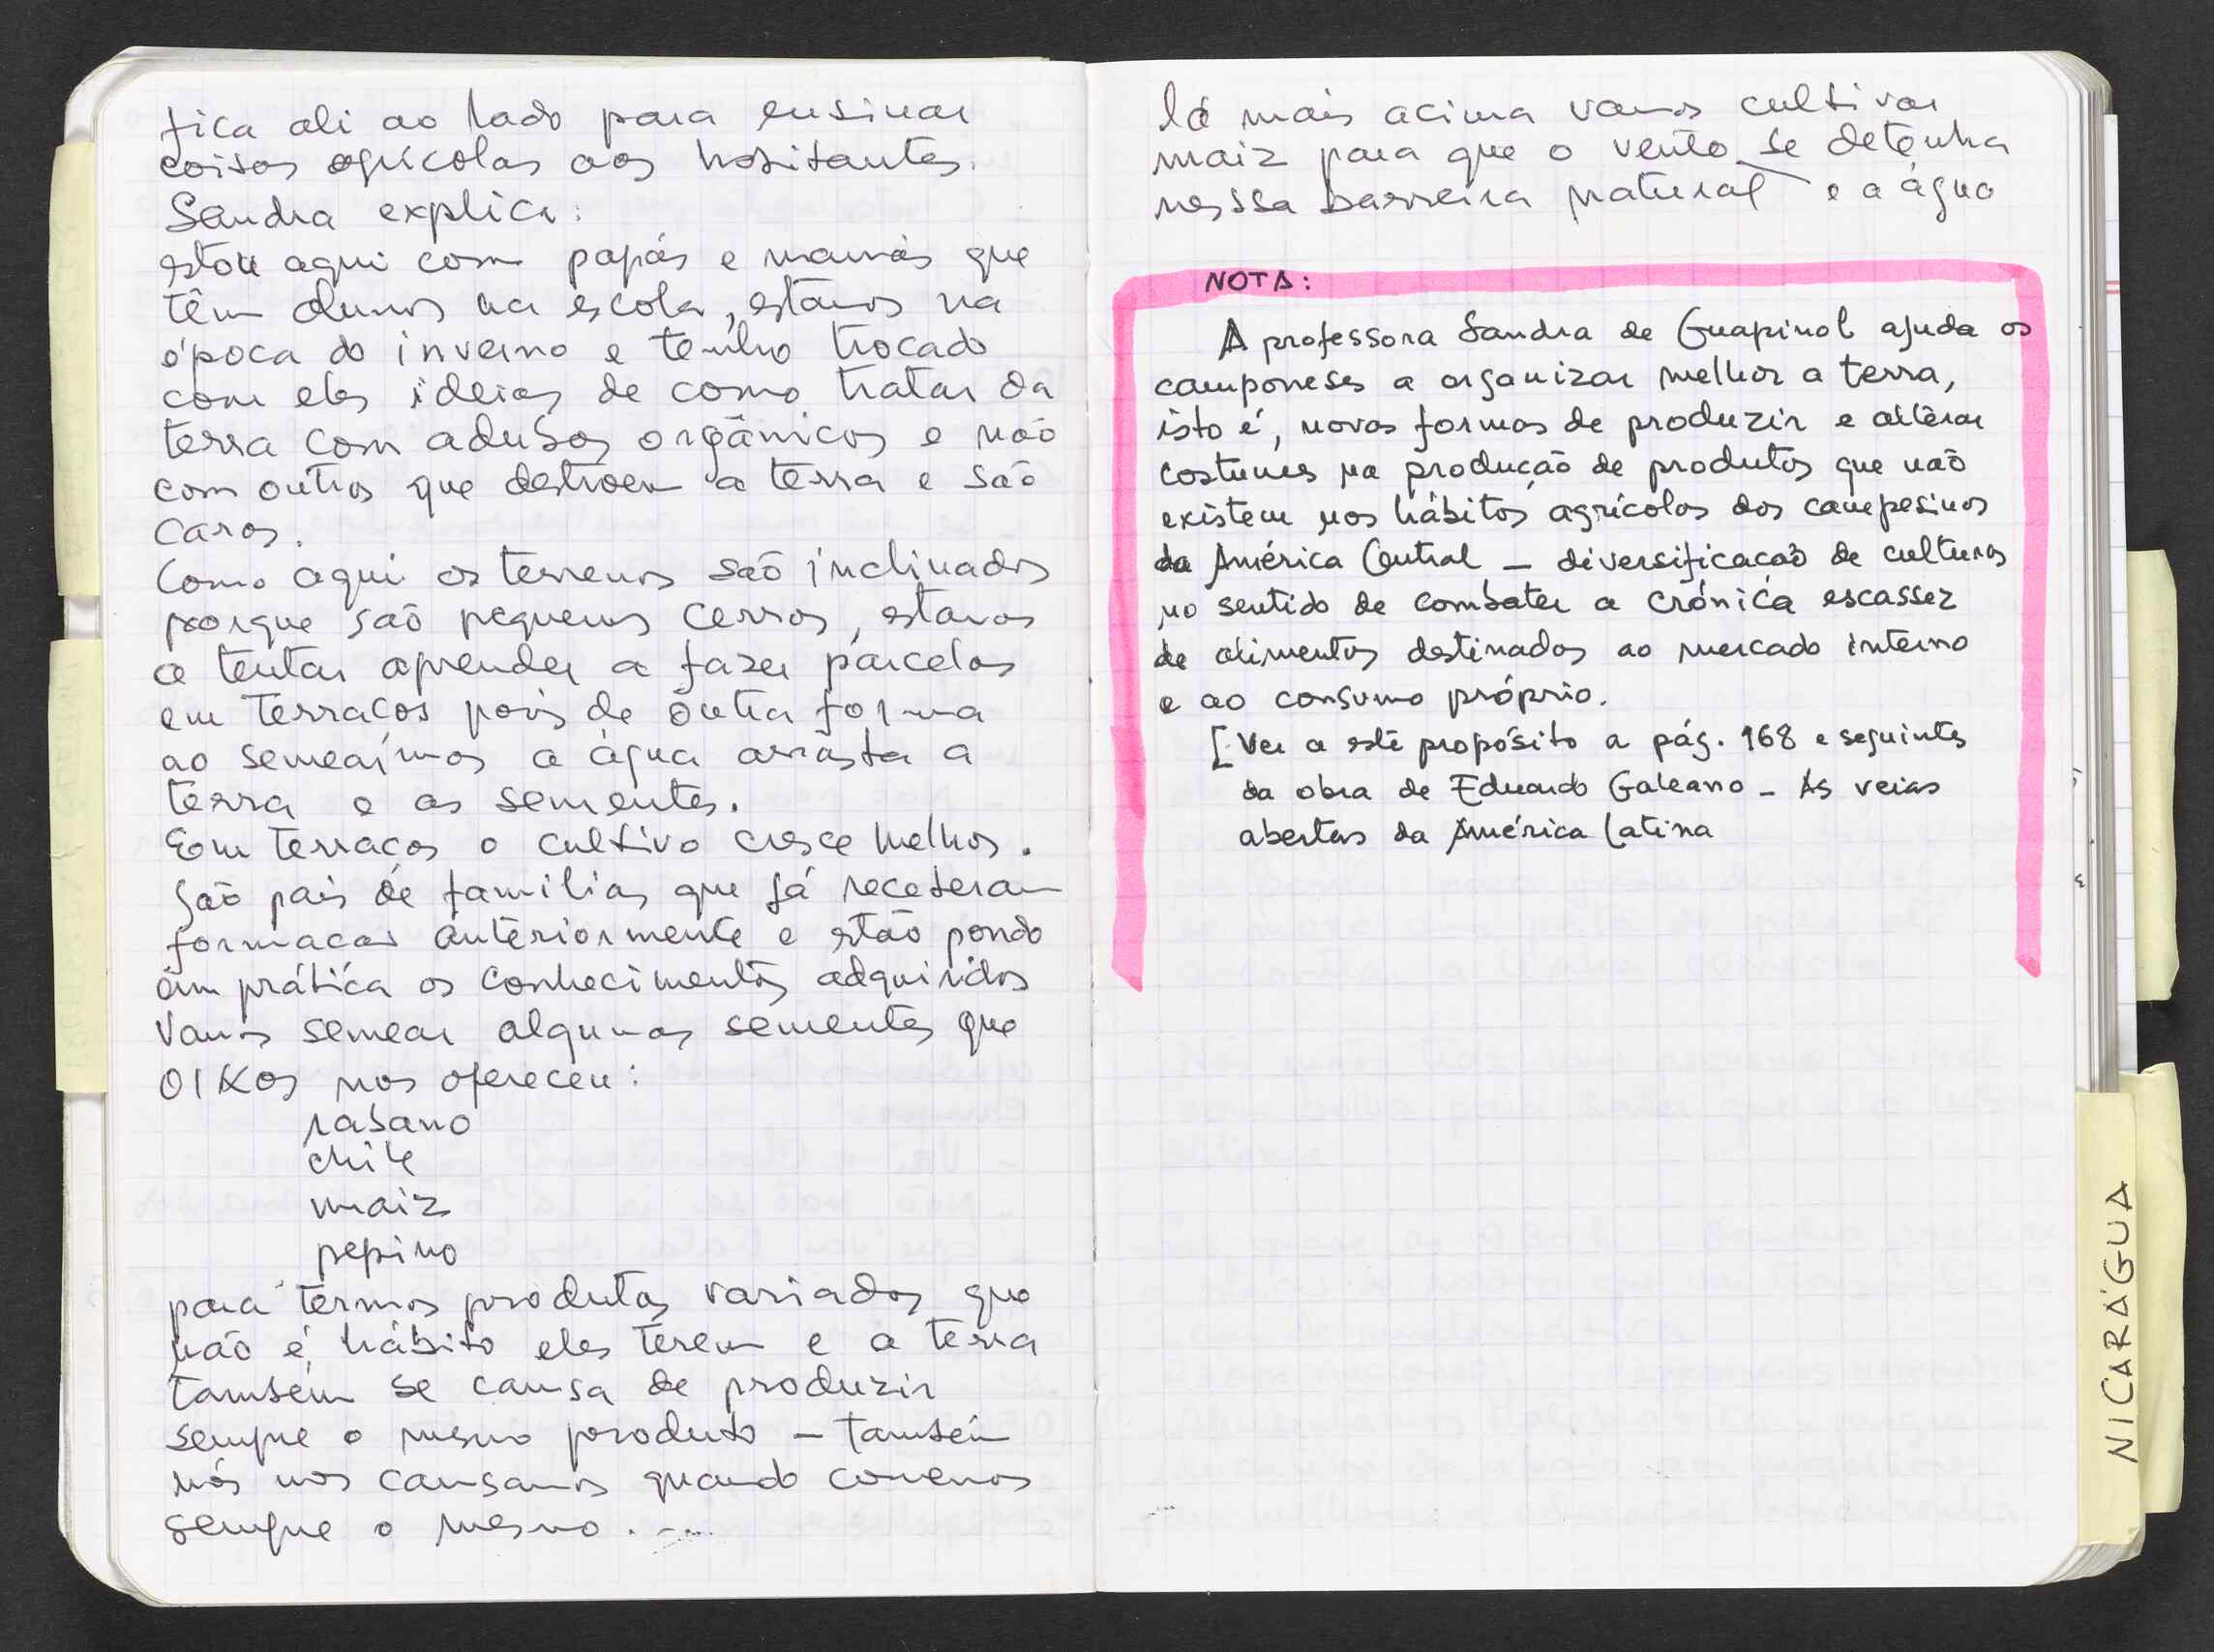 fica ali ao lado para ensinar
coisas agrícolas aos habitantes.
Sandra explica:
estou aqui com papás e mamás que
têm alunos na escola, estamos na
época do inverno e tenho trocado
com eles ideias de como tratar da
terra com adubos orgânicos e não
com outros que destroem a terra e são
caros.
Como aqui os terrenos são inclinados
porque são pequenos cerros, estamos
a tentar aprender a fazer parcelas
em terraços pois de outra forma
ao semearmos a água arrasta a
terra e as sementes.
Em terraços o cultivo cresce melhor.
São pais de familias que já receberam
formação anteriormente e estão pondo
em prática os conhecimentos adquiridos
Vamos semear algumas sementes que
OIKOS nos ofereceu:
rabano
chile
maiz
pepino
para termos produtos variados que
não é hábito eles terem e a terra
também se cansa de produzir
sempre o mesmo produto – também
nós nos cansamos quando comemos
sempre o mesmo. ...
lá mais acima vamos cultivar
maiz para que o vento se detenha
nessa barreira natural e a água
NOTA:
A professora Sandra de Guapinol ajuda os
camponeses a organizar melhor a terra,
isto é, novas formas de produzir e alterar
costumes na produção de produtos que não
existem nos hábitos agrícolas dos campesinos
da América Central – diversificação de culturas
no sentido de combater a crónica escassez
de alimentos destinados ao mercado interno
e ao consumo próprio.
[Ver a este propósito a pág. 168 e seguintes
da obra de Eduardo Galeano – As veias
abertas da América Latina
NICARÁGUA